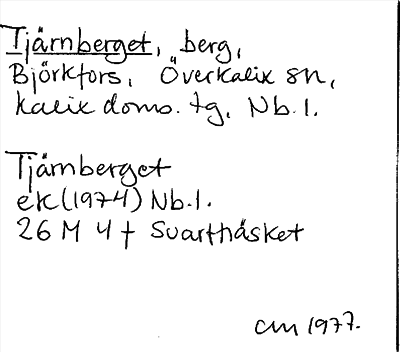 Tjärnberget, berg,
Björkfors, Överkalix sn,
Kalix doms. tg, Nb.l.
Tjärnberget
ek (1974) Nb.l.
26 M 4 f Svarthåsket
cm 1977.